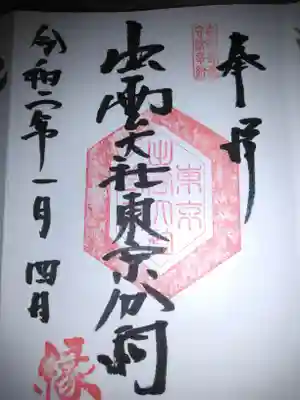 奉拝
東京
出雲大社東京分祠
令和二年一月四日
縁